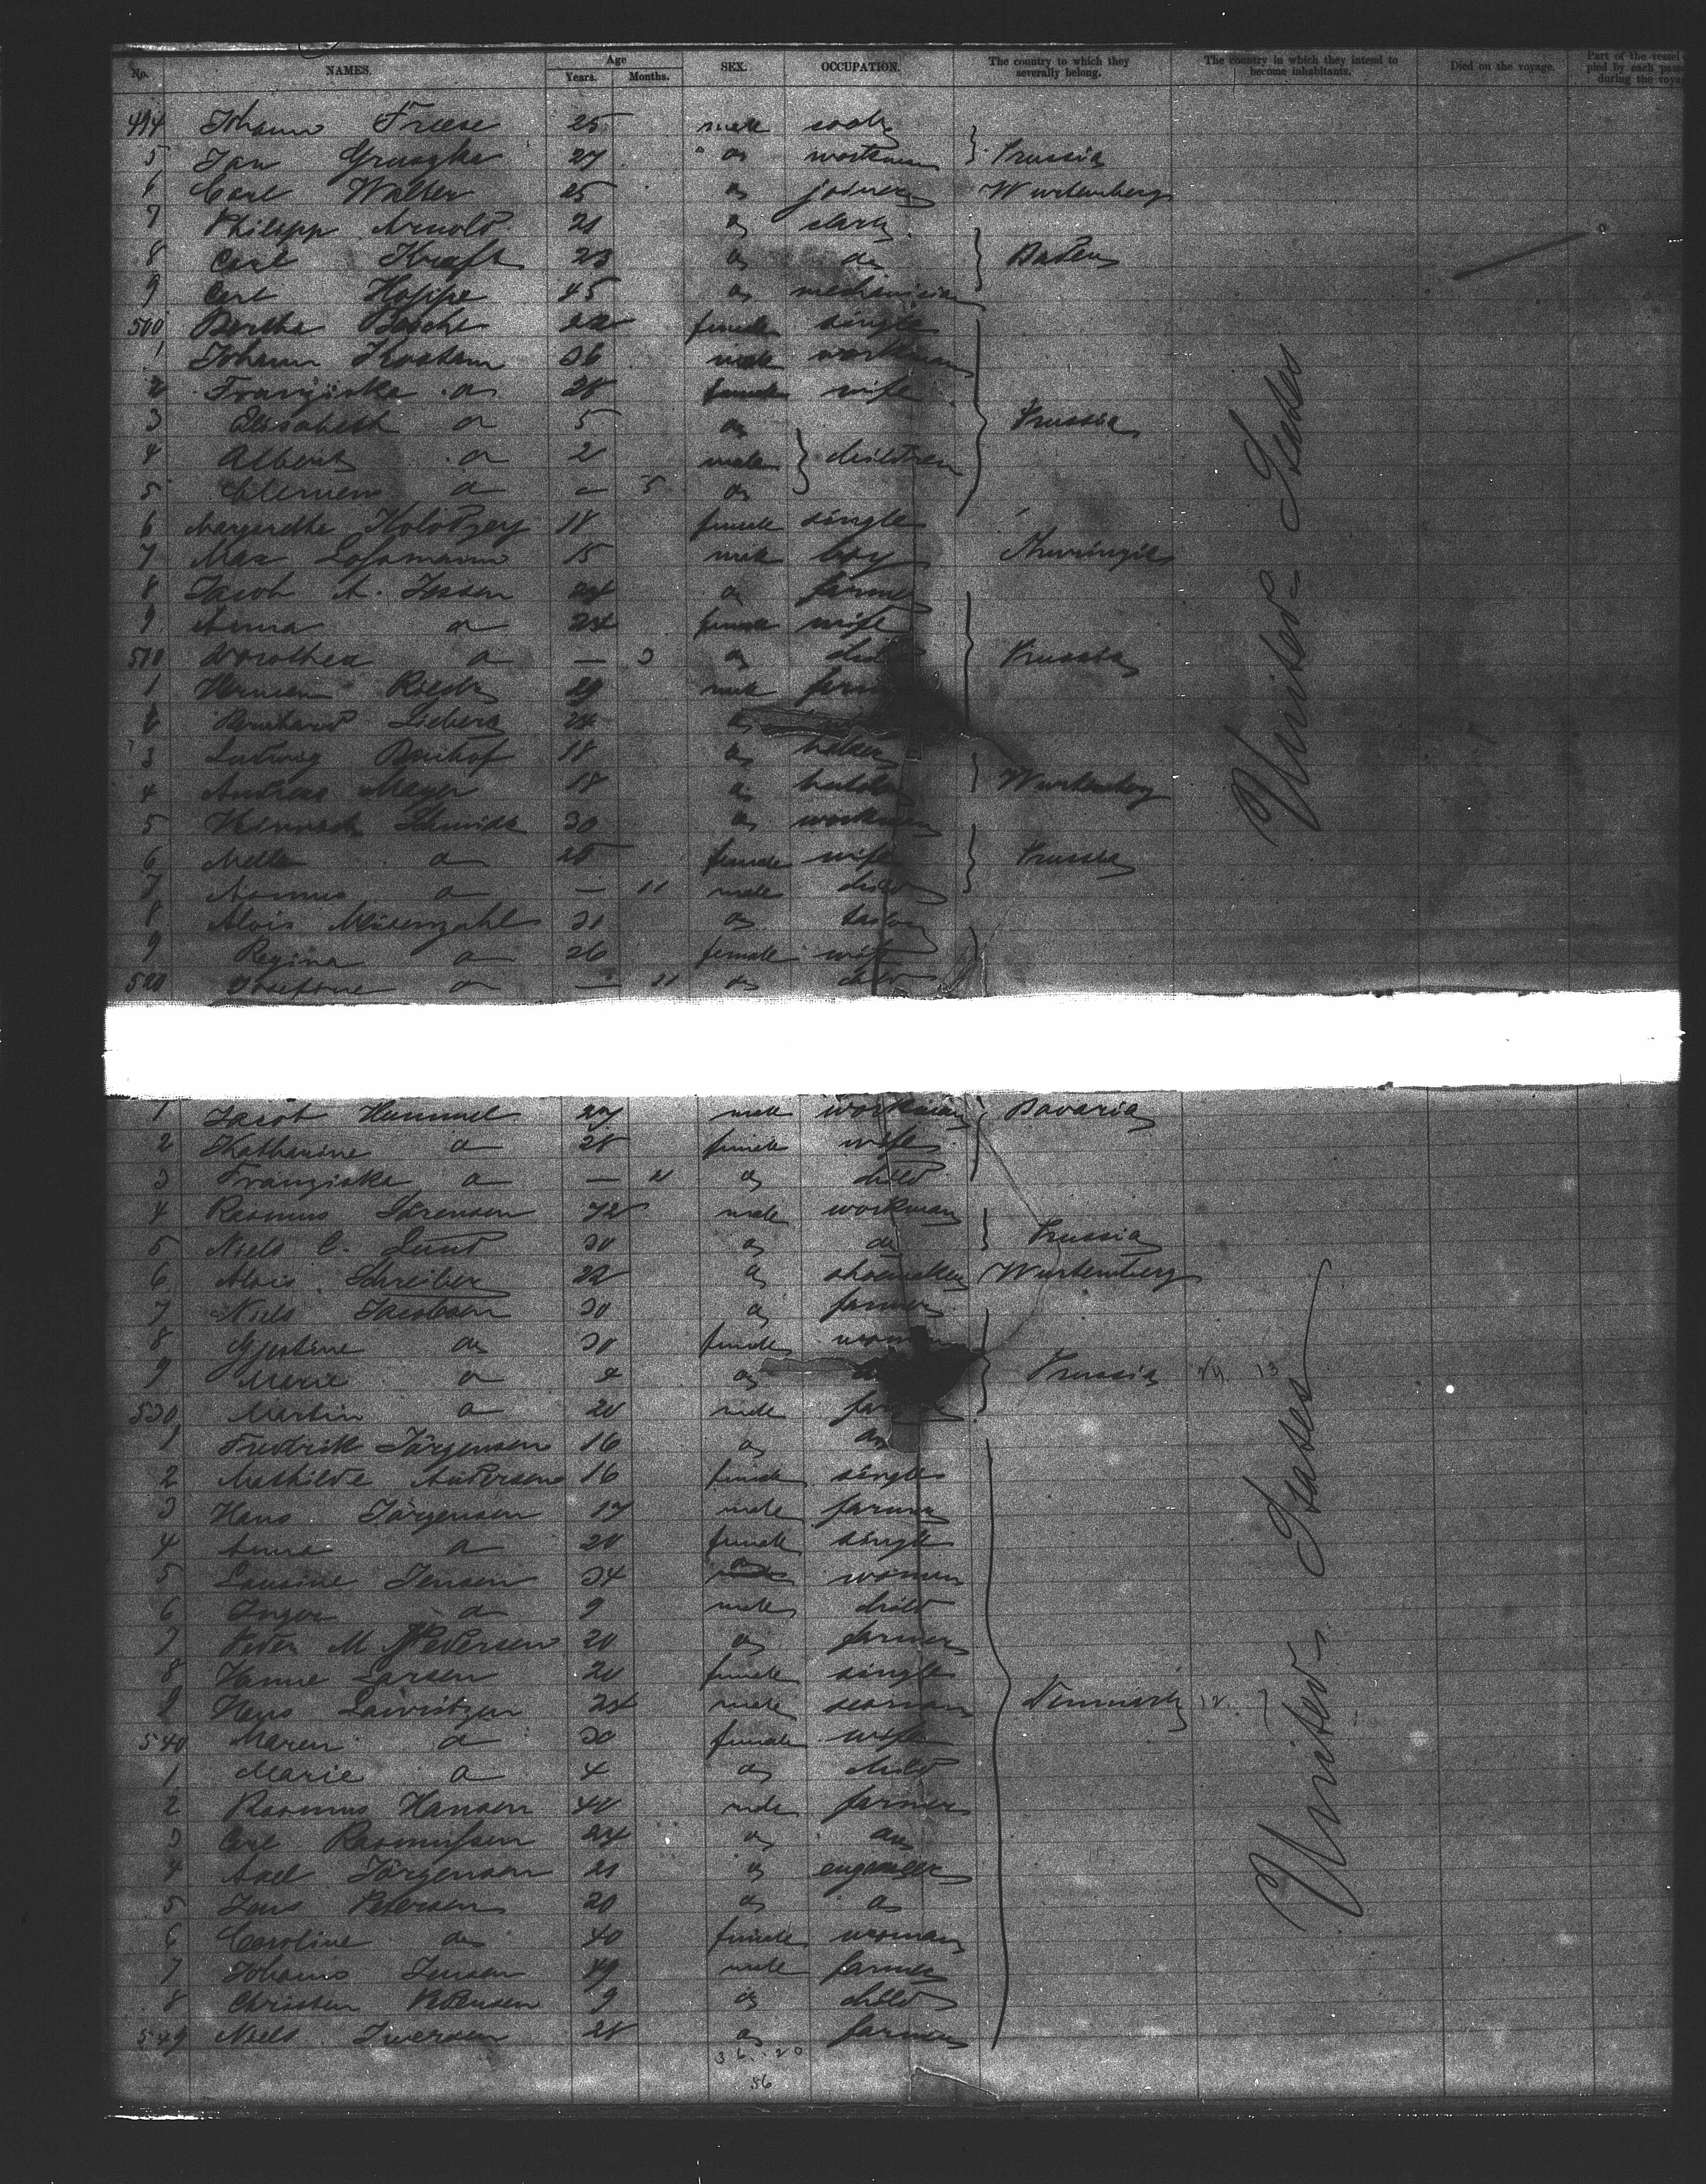 No. NAMES. Age Years. Months. SEX. OCCUPATION. The country to which they severally belong. The country in which they intend to become inhabitants. Died on the voyage. Part of the vessel
494 Johann Freese 25 male
5 Jan 27 do workman } Prussia
6 Carl Walter 25 do joiner Wurtemberg
7 Philipp Arnold 21 do clerk
8 Carl Kraft 23 do do } Baden
9 Carl 45 do mechanician
500 Bertha female single
1 Johann 36 male workman
2 Franziska do 28 female wife
3 Elisabeth do 5 do Prussia
4 Albert do 2 male } children
5 Clemens do — 5 do
6 Margarethe 18 female single
7 Max Lossmann 15 male boy Thuringia
8 Jacob A. Jessen do farmer
9 Anna do 24 female wife
510 Dorothea do — 3 do child Prussia
1 29 male
2 Bernhard 24 do
3 Ludwig 18 do
4 Andreas Meyer 18 do } Wurtemberg
5 Heinrich Schmidt 30 do workman
6 do 28 female wife } Prussia
7 Asmus do — 11 male child
8 Alois 31 do tailor
9 Regina do 26 female wife
520 Josefine do — 11 do child
1 Jacob Hummel 27 male workman Bavaria
2 Katharine do 28 female wife
3 Franziska do — do child
4 Rasmus Sörensen 72 male workman
5 Niels C. Lund 30 do do } Prussia
6 Alois Schreiber 22 do shoemaker Wurtemberg
7 Niels Jacobsen 30 do farmer
8 do 30 female woman
9 Marie do do Prussia
530 Martin do 20 male
1 Fredrik Jörgensen 16 do do
2 Mathilde Andersen 16 female single
3 Hans Jörgensen 17 male farmer
4 Anna do 20 female single
5 Laurine Jensen 34 do woman
6 Inger do 9 male child
7 Peder M Pedersen 20 do farmer
8 Hanne Larsen 20 female single
9 Hans Lauritzen 24 male seaman Denmark
540 Maren do 30 female wife
1 Marie do 4 do child
2 Rasmus Hansen 40 male farmer
3 Carl Rasmussen 24 do do
4 Axel Jörgensen 21 do engineer
5 Jens Petersen 20 do do
6 Caroline do 40 female woman
7 Johanns Jensen male farmer
8 Christen Pedersen 9 do child
549 Niels Iversen 28 do farmer
36 . 20
56
United States
United States